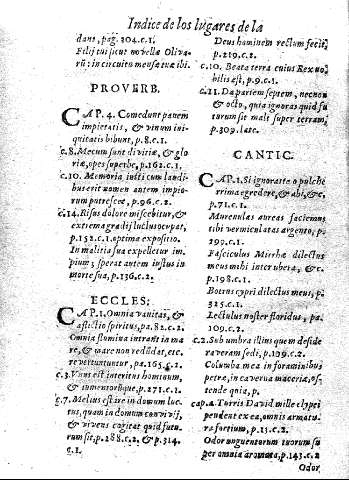 Indice de los lugares de la
dant, pag. 204.c.1.
Filij tui sicut novellæ Oliva-
rũ: in circuitu mensæ tuæ ibi.
PROVERB.
CAP. 4. Comedunt panem
impietatis, & vinum ini-
quitatis bibunt, p.8.c.1.
c.8. Mecum sunt divitiæ, & glo
riæ, opes superbæ, p.162.c.1.
c.10. Memoria iusti cum laudi-
bus erit nomen autem impio-
rum putrescet, p.96.c.2.
c.14. Risus dolore miscebitur, &
extrema gradij luctus occupat,
p.152.c.1. optima expositio.
In malitia sua expelletur im-
pius; sperat autem iustus in
morte sua, p.136.c.2.
ECCLES:
CAP.1. Omnia vanitas, &
aflictio spiritus, pa.82.c.2.
Omnia flumina intrant in ma
re, & mare non redũdat, etc.
revertuntur, pa.165.c.2.
c.3. Vnus est interitus hominum,
& iumentorũque, p.271.c.1.
c.7. Melius est ire in domum luc
tus, quam in domum convivij,
& vivens cogitat quid futu-
rum sit, p.288.c.2. & p.314.
c.1.
Deus hominem rectum fecit,
p.219.c.2.
c.10. Beata terra cuius Rex no-
bilis est, p.9.c.1.
c.11. Da partem septem, necnon
& octo, quia ignoras quid fu
turum sit mali super terram,
p.309. late.
CANTIC.
CAP.1. Si ignoras te o pulche
rrima egredere, & abi, & c,
p.71.c.1.
Murenulas aureas faciemus
tibi vermiculatas argento, p.
297.c.1.
Fasciculus Mirrhæ dilectus
meus mihi inter ubera, & c.
p.198.c.1.
Botrus cypri dilectus meus, p.
325.c.1.
Lectulus noster floridus, pa.
109.c.2.
c.2. Sub umbra illius quem deside
raveram sedi, p.109.c.2.
Columba mea in foraminibus
petræ, in caverna maceriæ, os-
tende quia, p.
cap.4. Turris David mille clypei
pendent ex ea, omnis armatu-
ra fortium, p.15.c.2.
Odor unguentorum tuorum su
per omnia aromata, p.143.c.2
Odor